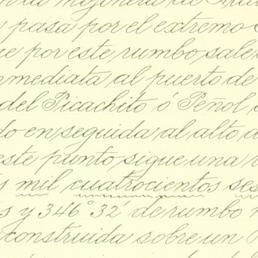 y pasa por el extremo
que por este rumbo sale
inmediata al puerto de
del Picachito ó Peñol
do en seguida al alto d
este punto sigue una
mil cuatrocientos ses
s y 346° 32' de rumbo
construida sobre un